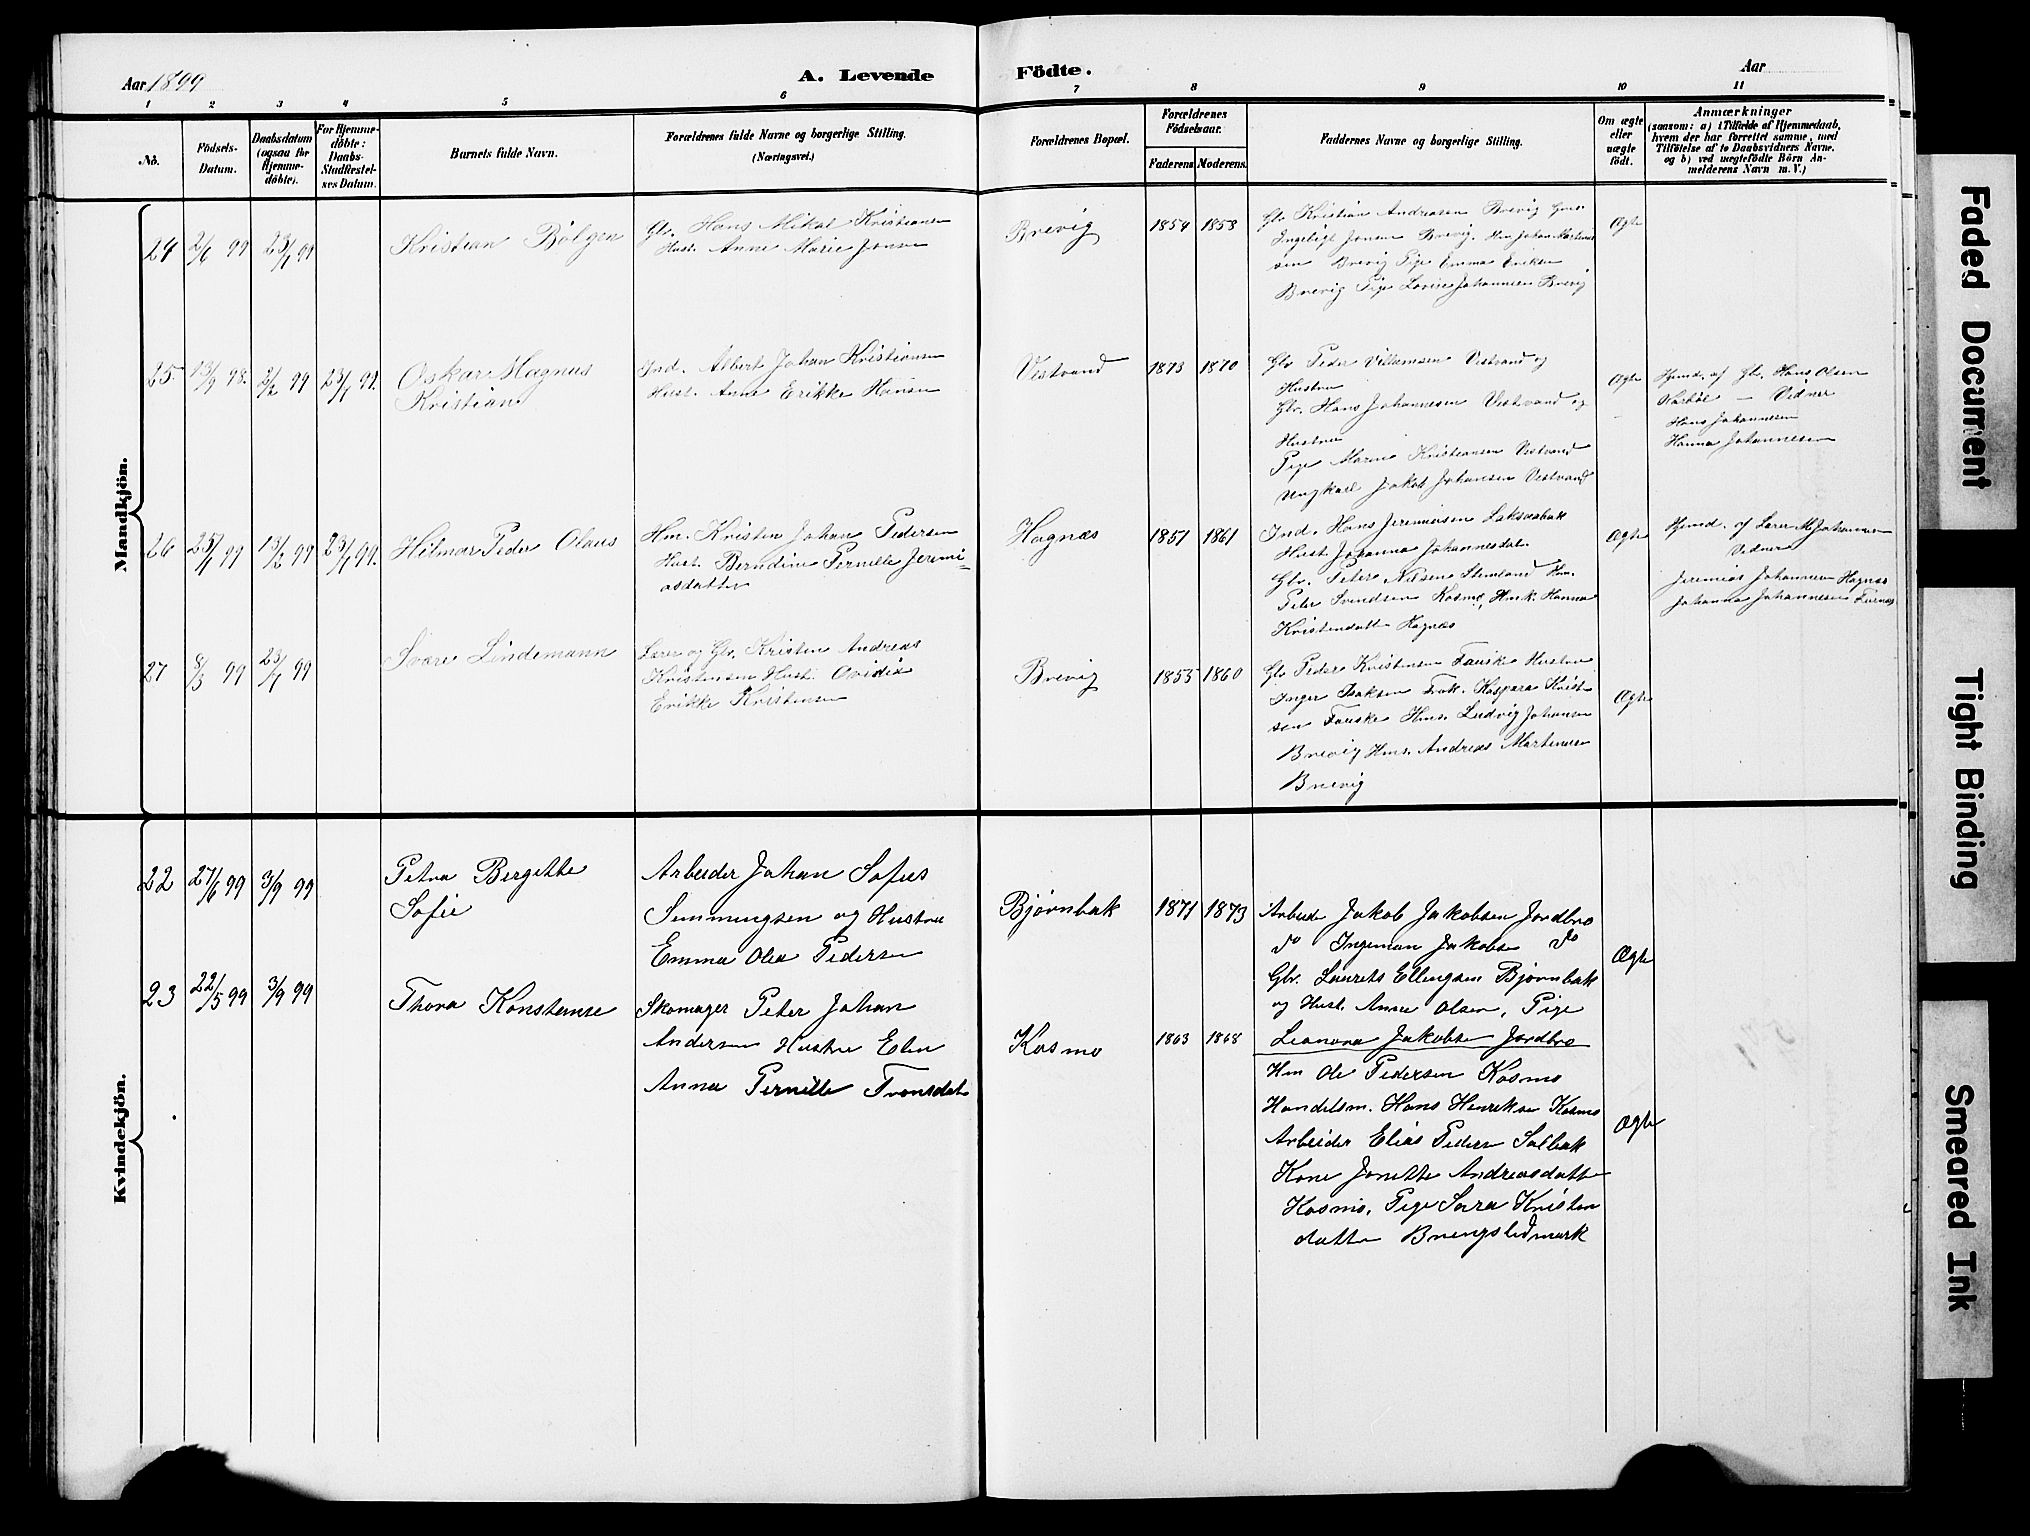 Aar 1899
A. Levende Födte.
Aar
1 2 3 4 5 6 7 8 9 10 11
No.
Födsels-Datum.
Daabsdatum (ogsaa for Hjemme-döbte).
For Hjemme-döbte: Daabs-Stadfæstel-ses Datum.
Barnets fulde Navn.
Forældrenes fulde Navne og borgerlige Stilling.
(Næringsvei.)
Forældrenes Bopæl.
Forældrenes Födselsaar.
Faderens Moderens.
Faddernes Navne og borgerlige Stilling.
Om ægte eller uægte födt.
Anmærkninger
(saasom: a) i Tilfælde af Hjemmedaab,
hvem der har forrettet samme, med
Tilföielse af to Daabsvidners Navne,
og b) ved uægtefödte Börn An-
melderens Navn m. V.)
Mandkjön.
24 2/6 99 23/7 99
Kristian Bölgen
Gbr. Hans Mikal Kristiansen
Hust. Anne Marie Jonsen
Brevig
1854 1858
Gbr Kristian Andreasen Brevig
Ingebrigt Jonsen Brevig. Hm Johan Martinus
sen Brevig Pige Emma Eriksen
Brevig Pige Lovise Johannesen Brevig
Ægte
25 13/9 98. 2/2 99 23/7 99.
Oskar Magnus
Kristian
Ind. Albert Johan Kristiansen
Hust. Anne Erikke Hansen
Vestvand
1873 1870
Gbr Peder Villumsen Vestvand og
Hustru
Gbr. Hans Johannesen Vestvand og
Hustru
Pige Marie Kristiansen Vestvand
Ungkarl Jakob Johansen Vestvand
Ægte
Hjmd. af Gbr. Hans Olsen
Vidner
Hans Johannesen
Hanna Johannesen
26 23/1 99 13/2 99 23/7 99.
Hilmar Peder Olaus
Hm. Kristen Johan Pedersen
Hust. Berndine Pernille Jeremi-
asdatter
Hagnæs
1851 1861
Ind. Hans Jeremiasen Laksaabak
Hust Johanna Johannesdat.
Gbr. Peter Nilsen Stemland Hm.
Peder Svendsen Kosmo, Hmk. Hanna
Kristendatt Hagnæs
Ægte
Hjmd. af Lærer M Johannesen
Vidner
Jeremias Johannesen Hagnæs
Johanna Johannesen Furnes
27 8/3 99 23/7 99
Svare Lindemann
Lærer og Gbr. Kristen Andreas
Kristensen Hust. Ovidia
Erikke Kristensen
Brevig
1855 1860
Gbr Peder Kristensen Fauske Hustru
Inger Isaksen Frøk. Kaspara Krist-
sen Fauske Hm. Ludvig Johansen
Brevig Hm. Andreas Martinusen
Brevig
Ægte
Kvindekjön.
22 27/6 99 3/9 99
Petra Bergitte
Sofie
Arbeider Johan Sofus
Simmingsen og Hustru
Emma Olea Pedersen
Bjørnbak
1871 1873
Arbeide Jakob Jakobsen Jordbro
do Ingeman Jakobse do
Gbr. Laurits Ellingsen Bjørnbak
og Hust. Anne Olsen, Pige
Leonora Jakobse Jordbro
Ægte
23 22/5 99 3/9 99
Thora Konstanse
Skomager Peter Johan
Andersen Hustru Elen
Anna Pernille Tronsdat
Kosmo
1863 1868
Hm Ole Pedersen Kosmo
Handelsm. Hans Henrikse Kosmo
Arbeider Elias Peders Solbak
Kone Jonette Andreasdatte
Kosmo, Pige Sara Kristen
datte Brengslidmark
Ægte
Faded Document
Tight Binding
Smeared Ink